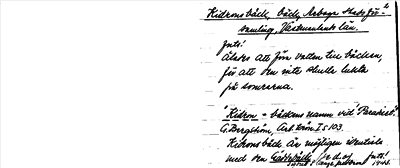 Kidrons bäck, bäck, Arboga stads för-
samling, Västmanlands län.
Juts!
Ålades att föra vatten till bäcken,
för att den inte skulle lukta
på somrarna.
"Kidron = bäckens namn vid 'Paradiset'."
G. Bergström, Arb. krön. I s 103.
Kidrons bäck är möjligen identisk
med den